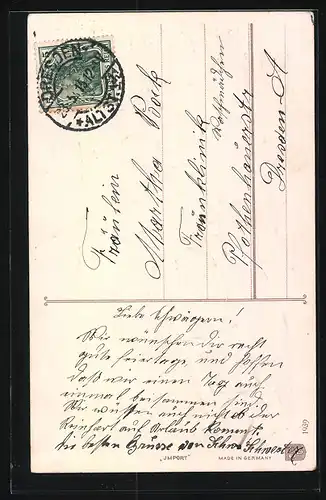 DRESDEN-
*ALTST.*
Fräulein
Martha Bock
Frauenklinik
Pfotenhauerstr
Dresden-A
Liebe Schwägerin!
Wir wünschen dir recht
gute feiertage und hoffen
daß wir einen Tag auch
einmal beisammen sind
Wir wissen auch nicht ob der
Reinhart auf Urlaub kommt
die besten Grüsse von Schw. Schwester
"JMPORT" MADE IN GERMANY